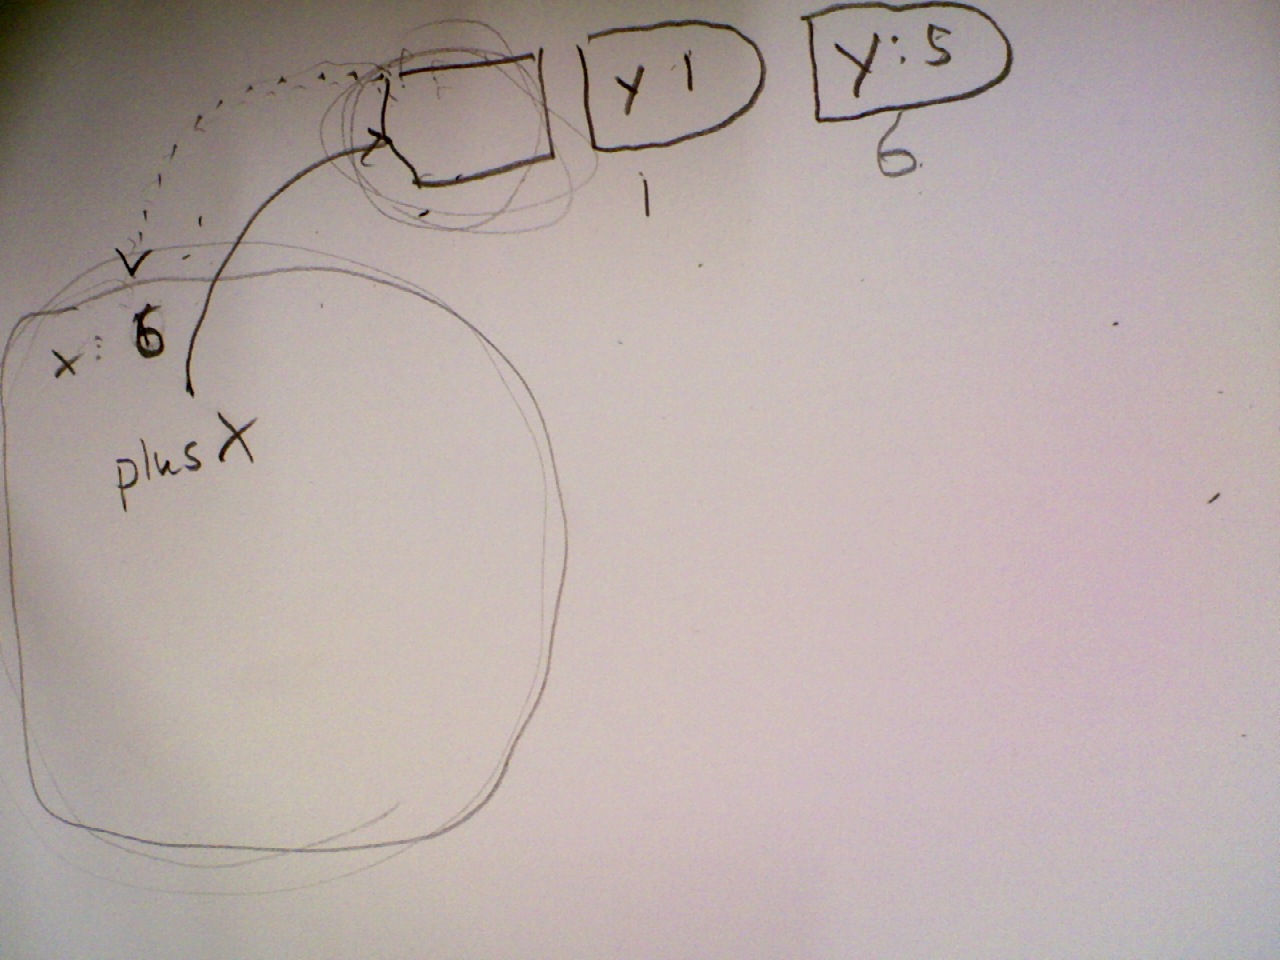 y 1
y: 5
1
6
x: 6
plusX